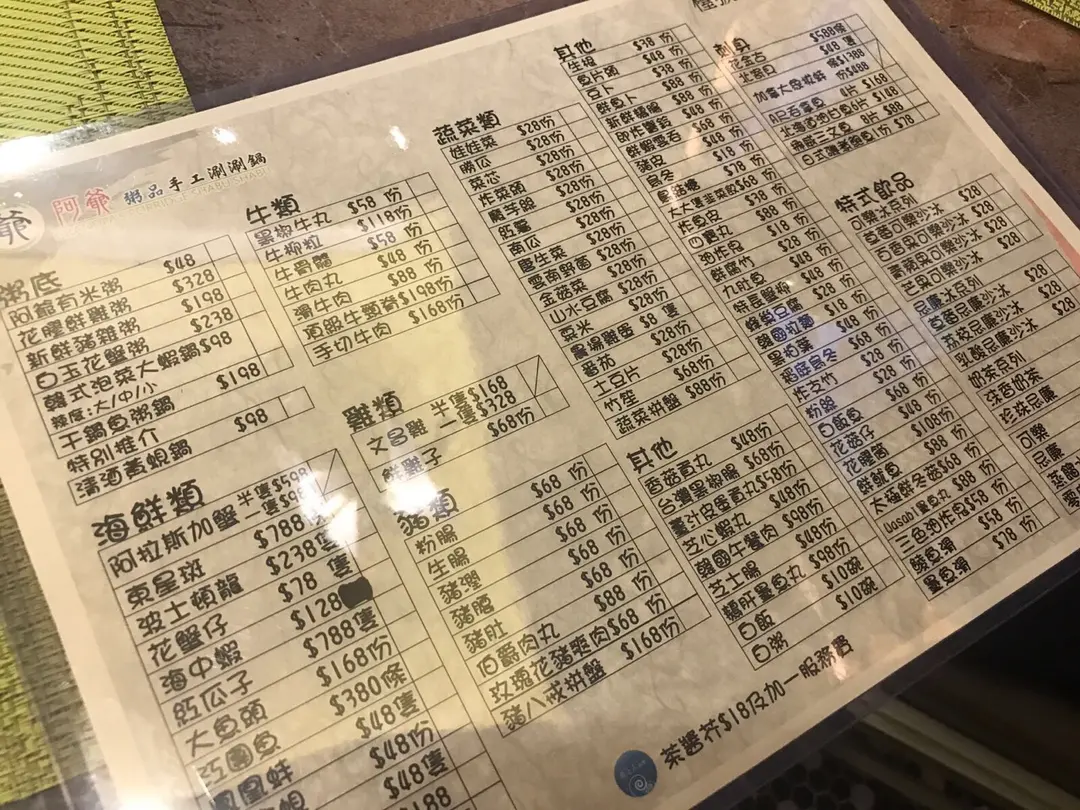 爺
阿爺
粥品手工涮涮鍋
粥底
阿爺有米粥 $48
花膠鮮雞粥 $328
新鮮豬雜粥 $198
白玉花蟹粥 $238
韓式泡菜大蝦鍋 $98
辣度:大/中/小
干鍋魚粥鍋 $198
特別推介
清酒黃蜆鍋 $98
海鮮類
阿拉斯加蟹 半隻$598
一隻$998
東星斑 $788
波士頓龍 $238隻
花蟹仔 $78 隻
海中蝦 $128
紅瓜子 $788隻
大魚頭 $168份
紅團魚 $380條
鳳凰蚌 $48隻
$48份
$48隻
牛類
黑椒牛丸 $58 份
牛柳粒 $118份
牛骨髓 $58 份
牛肉丸 $48 份
滑牛肉 $88 份
頂級牛頸脊 $198份
手切牛肉 $168份
雞類
之呂雞 半隻$168
一隻$328
鮮雞子 $68份
豬類
粉腸 $68 份
生腸 $68 份
豬潤 $68 份
豬腰 $68 份
豬肚 $68 份
伯爵肉丸 $88 份
玫瑰花豬爽肉 $68 份
豬八戒拼盤 $168份
蔬菜類
娃娃菜 $28份
勝瓜 $28份
菜芯 $28份
炸菜頭 $28份
魔芋絲 $28份
紅薯 $28份
南瓜 $28份
唐生菜 $28份
雲南野菌 $28份
金菇菜 $28份
山水豆腐 $28份
粟米 $28份
農場雞蛋 $8 隻
番茄 $28份
土豆片 $28份
竹笙 $68份
蔬菜拼盤 $88份
其他
$38 份
魚片頭 $48 份
豆卜 $38 份
鮮魚卜 $88 份
新鮮腐腦 $88 份
即炸響鈴 $48 份
鮮蝦雲吞 $68 份
豬皮 $48 份
烏冬 $18 份
$78 份
大大隻韭菜餃 $68份
炸魚皮 $38 份
四寶丸 $88 份
油炸鬼 $18 份
鮮腐竹 $38 份
九肚魚 $48 份
特長蟹柳 $58 份
蜂巢豆腐 $28 份
韓國拉麵 $18 份
黑柏葉 $48 份
稻庭烏冬 $68 份
炸支竹 $28 份
粉絲 $28 份
白飯魚 $68 份
花菇仔 $48 份
花膠筒 $108份
鮮魷魚 $88 份
大貓鮮冬菇 $68 份
wasabi墨魚丸 $88 份
三色油炸鬼 $58 份
鯪魚滑 $58 份
墨魚滑 $78 份
其他
香菇貢丸 $48份
台灣黑椒腸 $68份
薑汁皮蛋貢丸 $58份
芝心蝦丸 $48份
韓國午餐肉 $98份
芝士腸 $48份
鵝肝墨魚丸 $98份
白飯 $10碗
白粥 $10碗
刺身
花金古 $588條
北寄貝 $48 隻
加拿大象拔蚌 條$1388
份$488
A2吞拿魚 4片 $168
北海道油甘魚 6片 $148
挪威三文魚 8片 $88
特式飲品
可樂冰系列 $28
$28
百香果可樂沙冰 $28
青檸可樂沙冰 $28
芒果可樂沙冰
忌廉冰系列
百香忌廉沙冰 $28
荔枝忌廉沙冰 $28
乳酸忌廉沙冰 $28
奶茶系列
珍香奶茶
珍珠忌廉
可樂
忌廉
茶醬芥$18及加一服務費